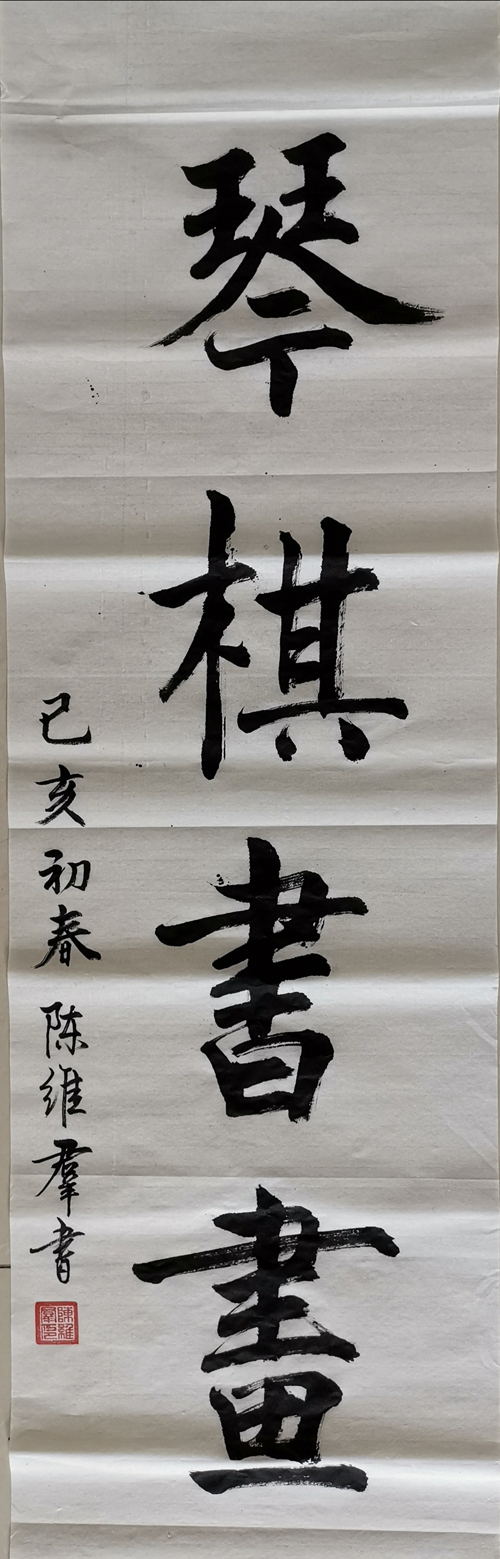 琴棋書畫
己亥初春陈維羣書
陳維羣印